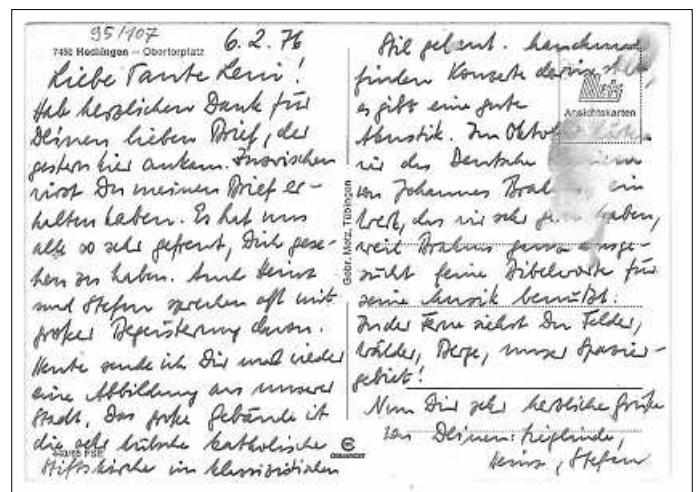 95/107
7450 Hechingen – Obertorplatz
6.2.76
Liebe Tante Leni!
Hab herzlichen Dank für
Deinen lieben Brief, der
gestern hier ankam. Inzwischen
wirst Du meinen Brief er-
halten haben. Es hat uns
alle so sehr gefreut, Dich gese-
hen zu haben. Auch Heinz
und Stefan sprechen oft mit
großer Begeisterung davon.
Heute sende ich Dir mal wieder
eine Abbildung aus unserer
Stadt. Das große Gebäude ist
die sehr hübsche katholische
Stiftskirche im klassizistischen
Gebr. Metz, Tübingen
Stil gebaut. Manchmal
finden Konzerte darin statt,
es gibt eine gute
Akustik. Im Oktober
wir das Deutsche Requiem
von Johannes Brahms, ein
Werk, das wir sehr gern haben,
weil Brahms ganz ausge-
sucht feine Bibelworte für
seine Musik benutzt.
In der Ferne siehst Du Felder,
Wälder, Berge, unser Spazier-
gebiet!
Nun Dir sehr herzliche Grüße
von Deinen: Sieglinde,
Heinz, Stefan
Metz
Ansichtskarten